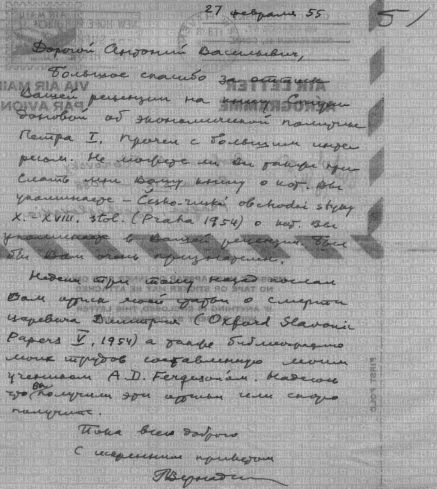 27 февраля 55
5/
Дорогой Антоний Васильевич,
Большое спасибо за оттиск
Вашей рецензии на книгу
об экономической политике
Петра I. Прочел с большим инте
ресом. Не можете ли Вы также при
слать мне Вашу книгу о кот. Вы
упоминаете – Česko-ruské obchodní styky
X.-XVIII. stol. (Praha 1954) о кот. Вы
упоминаете в Вашей рецензии. Был
бы Вам очень признателен.
Недели три тому назад послал
Вам оттиск моей статьи о смерти
царевича Димитрия (Oxford Slavonic
Papers V, 1954) а также библиографию
моих трудов составленную моим
учеником A.D. Fergusonом. Надеюсь
что Вы получили эти оттиски или скоро
получите.
Пока всего доброго
С искренним приветом
ГВернадский
AIR LETTER
VIA AIR MAIL
PAR AVION
FIRST FOLD